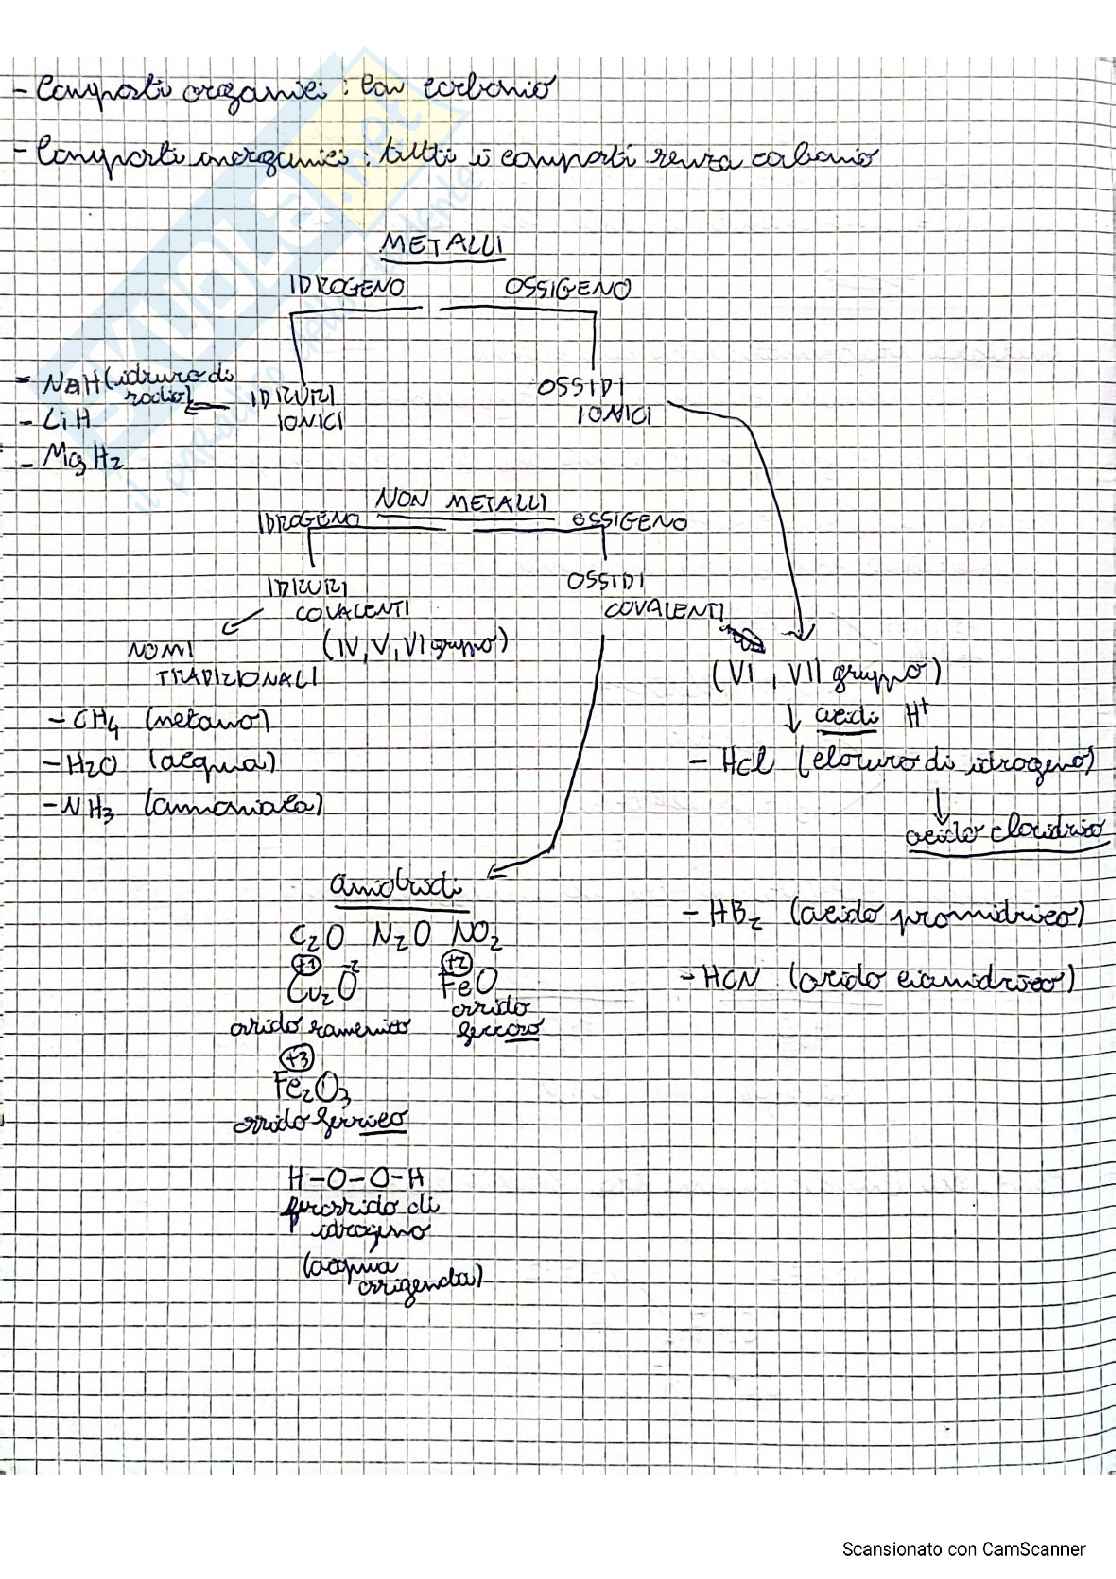 - Composti organici : con carbonio
- Composti inorganici : tutti i composti senza carbonio
METALLI
IDROGENO OSSIGENO
- NaH (idruro di sodio)
- LiH
- MgH2
IDRURI IONICI
OSSIDI IONICI
NON METALLI
IDROGENO OSSIGENO
IDRURI COVALENTI
(IV, V, VI gruppo)
OSSIDI COVALENTI
NOMI TRADIZIONALI
- CH4 (metano)
- H2O (acqua)
- NH3 (ammoniaca)
(VI, VII gruppo)
acidi H+
- HCl (cloruro di idrogeno)
acido cloridrico
- HBr (acido bromidrico)
- HCN (acido cianidrico)
anidridi
C2O N2O NO2
+1 -2 +2
Cu2O FeO
ossido rameinito
ossido ferroso
+3
Fe2O3
ossido ferrico
H-O-O-H
perossido di
idrogeno
(acqua
ossigenata)
Scansionato con CamScanner